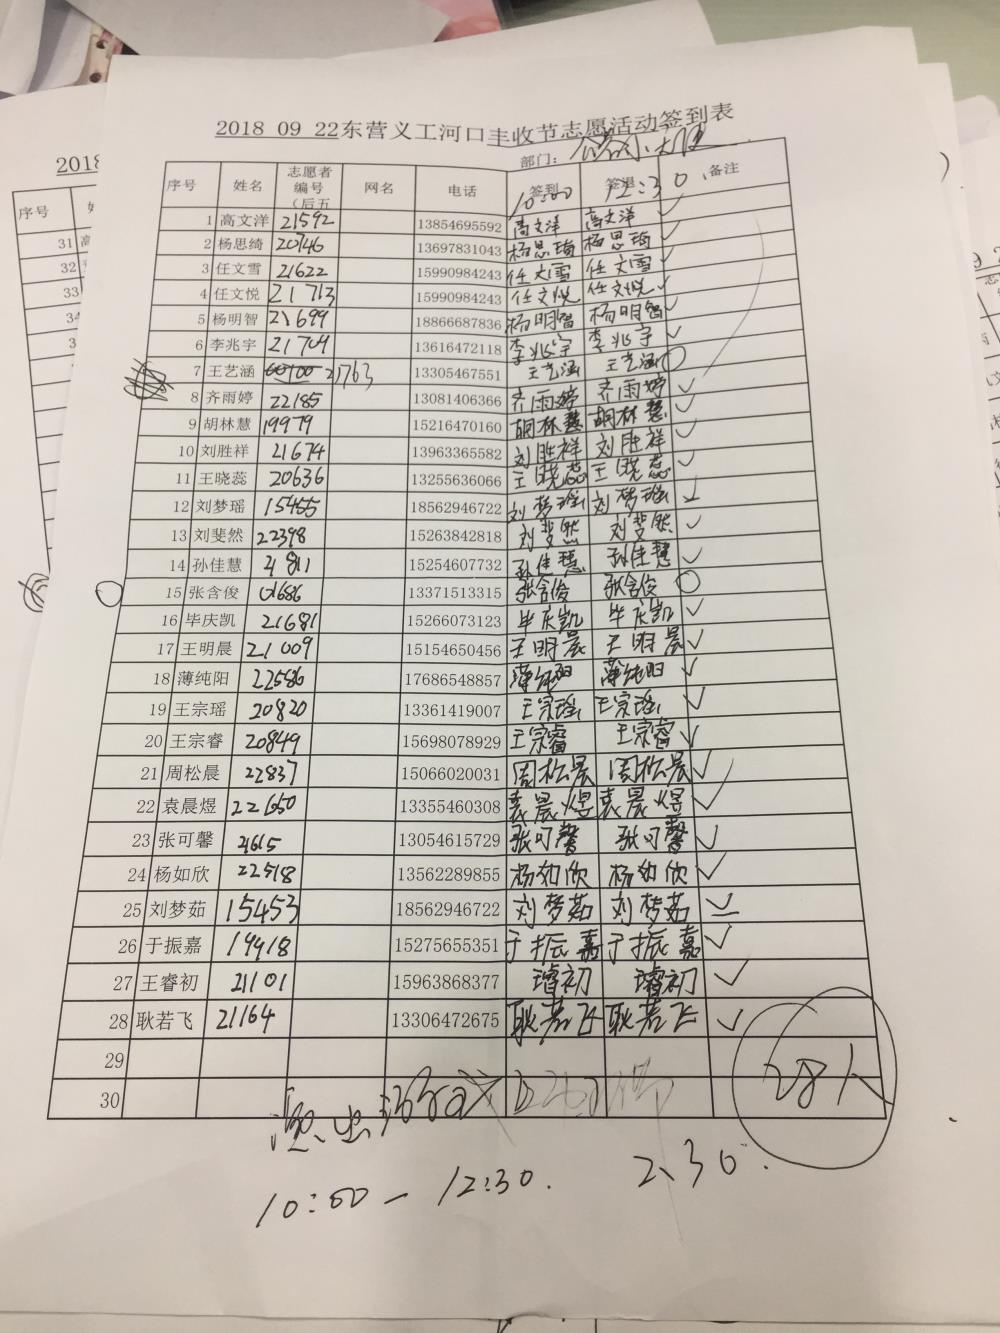 2018 09 22东营义工河口丰收节志愿活动签到表
部门：
序号 姓名 志愿者编号（后五 网名 电话 签到 签退 备注
10:00 12:30
1 高文洋 21592 13854695592 高文洋 高文洋 ✓
2 杨思绮 20746 13697831043 杨思琦 杨思琦 ✓
3 任文雪 21622 15990984243 任文雪 任文雪 ✓
4 任文悦 21713 15990984243 任文悦 任文悦 ✓
5 杨明智 21699 18866687836 杨明智 杨明智 ✓
6 李兆宇 21704 13616472118 李兆宇 李兆宇 ✓
7 王艺涵 21763 13305467551 王艺涵 王艺涵
8 齐雨婷 22185 13081406366 齐雨婷 齐雨婷 ✓
9 胡林慧 19979 15216470160 胡林慧 胡林慧 ✓
10 刘胜祥 21674 13963365582 刘胜祥 刘胜祥 ✓
11 王晓蕊 20636 13255636066 王晓蕊 王晓蕊 ✓
12 刘梦瑶 15455 18562946722 刘梦瑶 刘梦瑶 ✓
13 刘斐然 22398 15263842818 刘斐然 刘斐然 ✓
14 孙佳慧 15254607732 孙佳慧 孙佳慧 ✓
15 张含俊 01686 13371513315 张含俊 张含俊
16 毕庆凯 21681 15266073123 毕庆凯 毕庆凯 ✓
17 王明晨 21009 15154650456 王明晨 王明晨 ✓
18 薄纯阳 22586 17686548857 薄纯阳 薄纯阳 ✓
19 王宗瑶 20820 13361419007 王宗瑶 王宗瑶 ✓
20 王宗睿 20849 15698078929 王宗睿 王宗睿 ✓
21 周松晨 22837 15066020031 周松晨 周松晨 ✓
22 袁晨煜 22650 13355460308 袁晨煜 袁晨煜 ✓
23 张可馨 21615 13054615729 张可馨 张可馨 ✓
24 杨如欣 22518 13562289855 杨如欣 杨如欣 ✓
25 刘梦茹 15453 18562946722 刘梦茹 刘梦茹 ✓
26 于振嘉 19918 15275655351 于振嘉 于振嘉 ✓
27 王睿初 21101 15963868377 睿初 睿初 ✓
28 耿若飞 21164 13306472675 耿若飞 耿若飞 ✓
29
30
28人
10:00—12:30. 2.30.
2018
序号
31
32
33
34